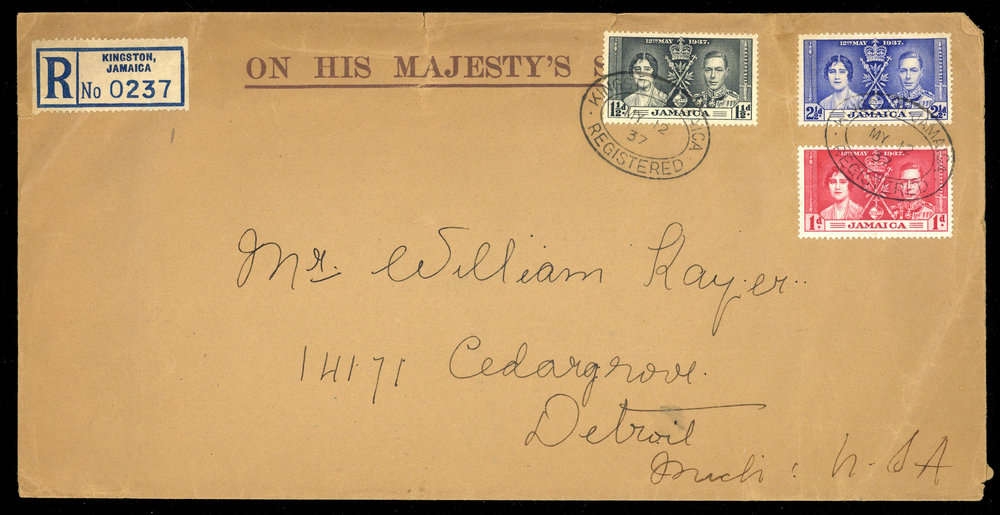 KINGSTON,
JAMAICA
R No 0237
ON HIS MAJESTY'S S
12TH MAY 1937.
1½d. JAMAICA 1½d.
12TH MAY 1937.
2½d. JAMAICA 2½d.
12TH MAY 1937.
1d. JAMAICA 1d.
MY 12
37
REGISTERED
JAMAI
MY 12
37
REGISTERED
Mr. William Kayer.
14171 Cedargrove.
Detroit
Mich: U-SA